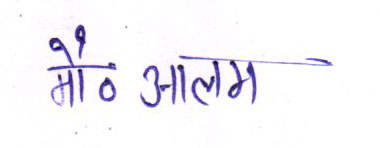 मौ० आलम